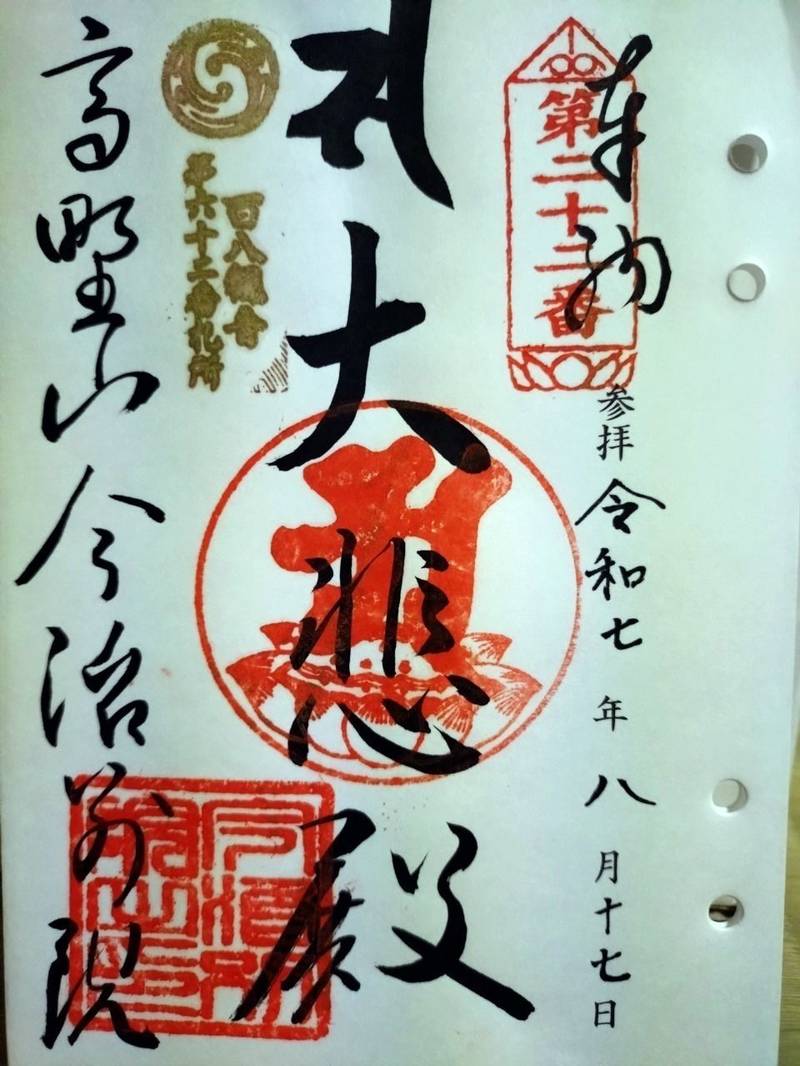 奉納
第二十二番
参拝 令和七年八月十七日
大悲殿
百八観音
第六十二番札所
高野山今治別院